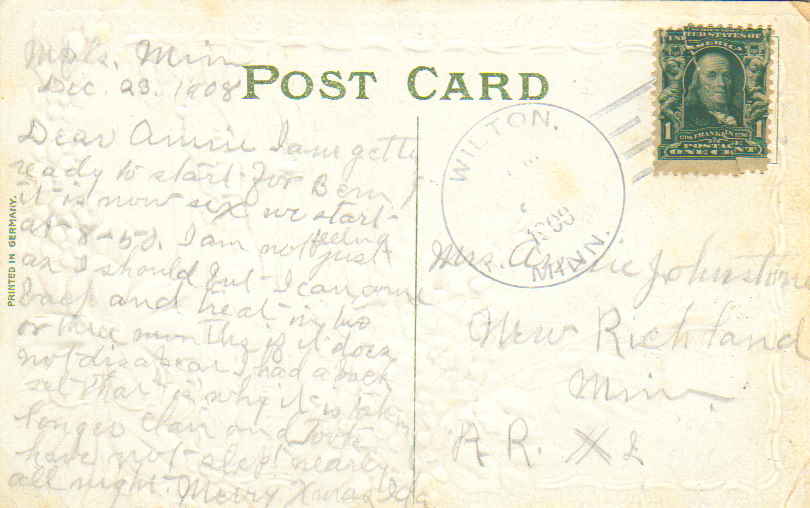 Mpls. Minn
Dec. 23. 1908
POST CARD
Dear Annie I am getting
ready to start for Bem
it is now six we start
at 8-50. I am not feeling
just
as I should but I can come
back and treat in two
or three months if it does
not disapear I had a back
set that is why it is taking
longer Clair and Toots
have not slept nearly
all night. Merry Xmas Ida
PRINTED IN GERMANY.
WILTON.
1909
MINN.
UNITED STATES OF
AMERICA
1 FRANKLIN 1
POSTAGE
ONE CENT
Mrs. Annie Johnston
New Richland
Minn
R R. X 2